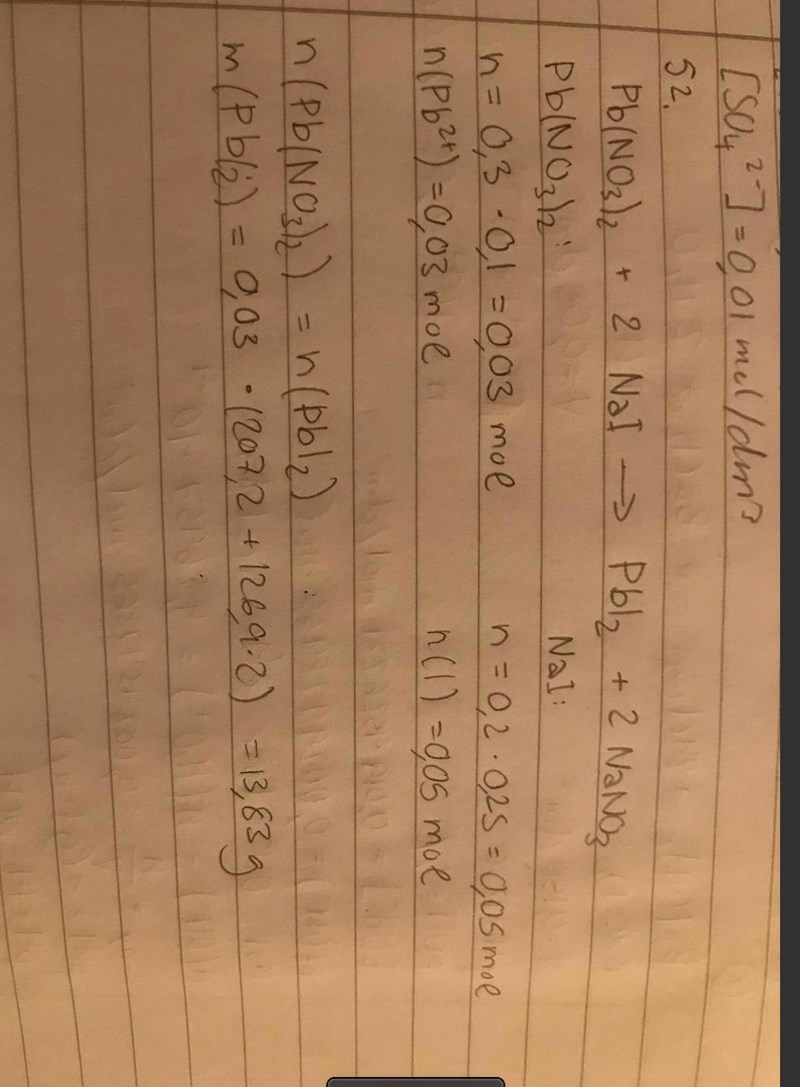 [SO₄²⁻] = 0,01 mol/dm³
52.
Pb(NO₃)₂ + 2 NaI → PbI₂ + 2 NaNO₃
Pb(NO₃)₂: NaI:
n = 0,3 · 0,1 = 0,03 mol n = 0,2 · 0,25 = 0,05 mol
n(Pb²⁺) = 0,03 mol n(I) = 0,05 mol
n(Pb(NO₃)₂) = n(PbI₂)
m(PbI₂) = 0,03 · (207,2 + 126,9·2) = 13,83 g